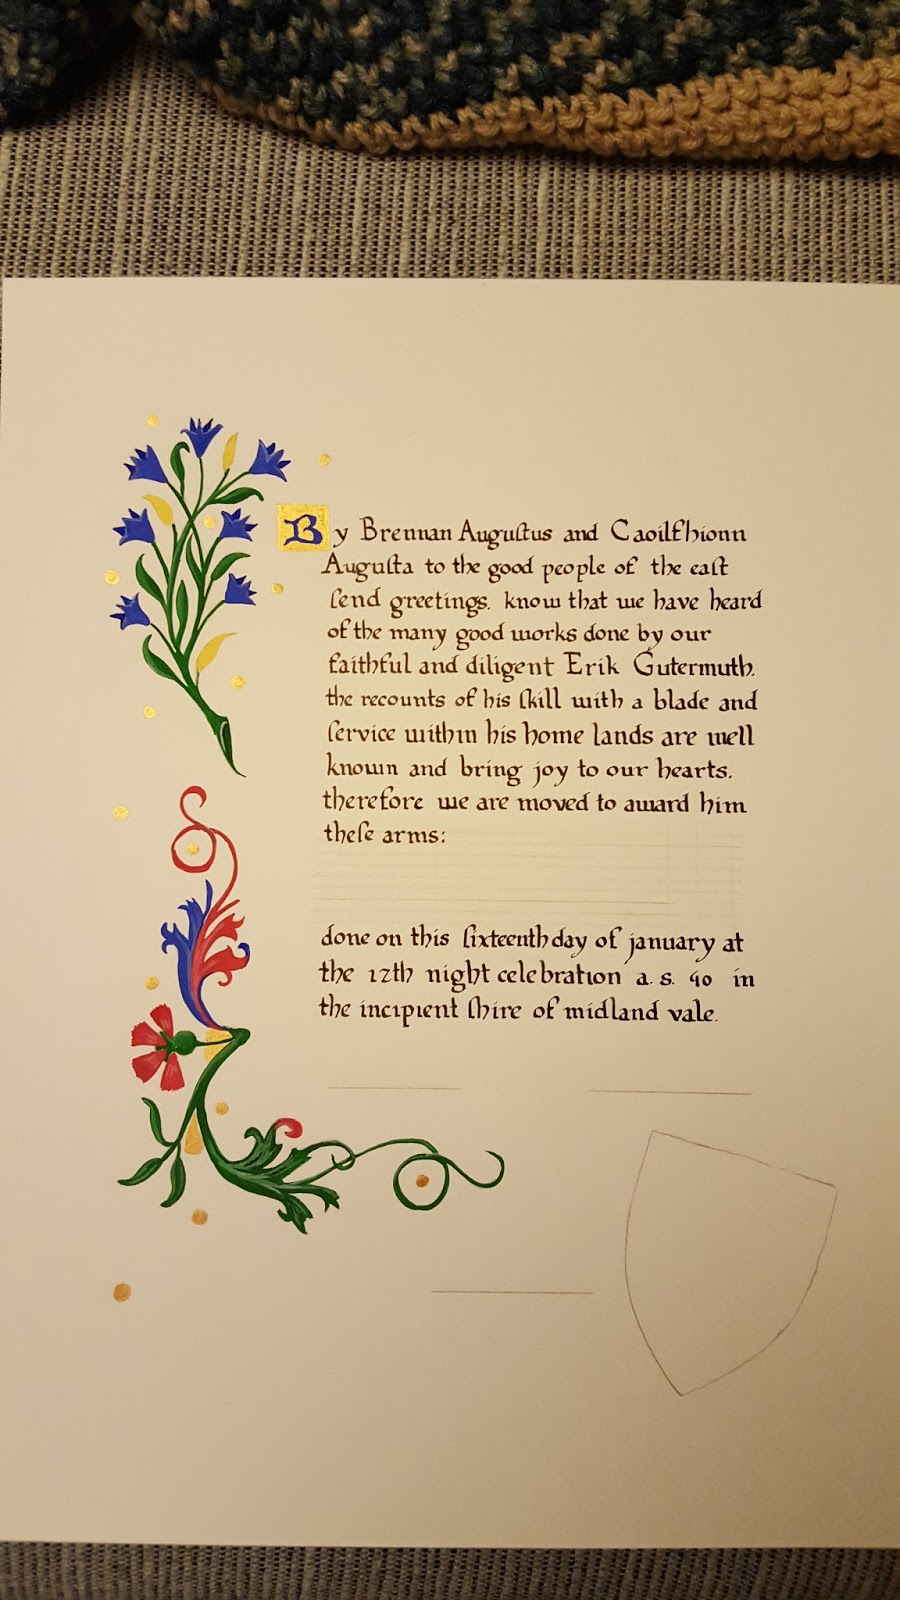 By Brennan Auguſtus and Caoilfhionn
Auguſta to the good people of the eaſt
ſend greetings. know that we have heard
of the many good works done by our
faithful and diligent Erik Gutermuth.
the recounts of his ſkill with a blade and
ſervice within his home lands are well
known and bring joy to our hearts.
therefore we are moved to award him
theſe arms:
done on this ſixteenth day of january at
the 12th night celebration a.s. 50 in
the incipient ſhire of midland vale.